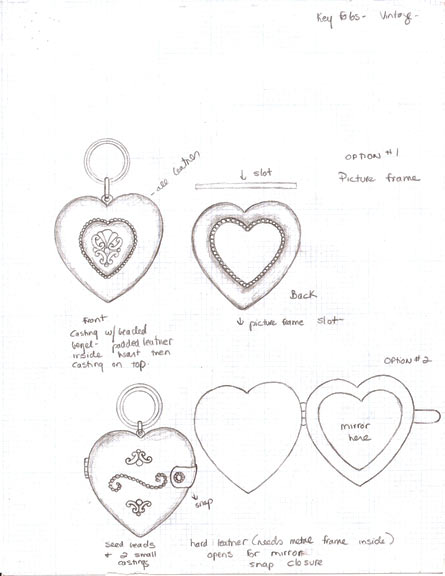 Key Fobs - Vintage -
OPTION #1
Picture frame
- all leather
↓ slot
Back
↓ picture frame slot
front
Casting w/ beaded
bezel - padded leather
inside heart then
casting on top
OPTION #2
mirror
here
snap
seed beads
+ 2 small
castings
hard leather (needs metal frame inside)
opens for mirror
snap closure